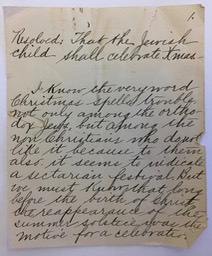 1.
Resolved: That the Jewish
child shall celebrate Xmas—
I know the very word
Christmas spells trouble
not only among the ortho-
dox Jews, but among the
non Christians who do not
like it because to them
also it seems to indicate
a sectarian festival. But
we must know that long
before the birth of Christ
the reappearance of the
summer solstice was the
motive for a celebration